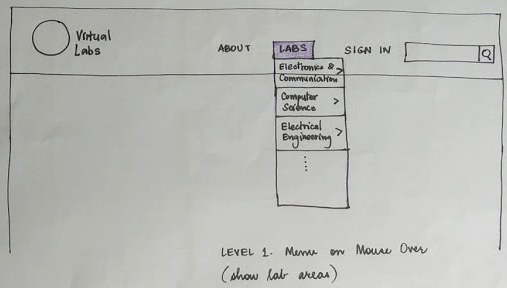 Virtual
Labs
ABOUT
LABS
SIGN IN
Electronics &
Communication
Computer
Science
Electrical
Engineering
LEVEL 1. Menu on Mouse Over
(show lab areas)